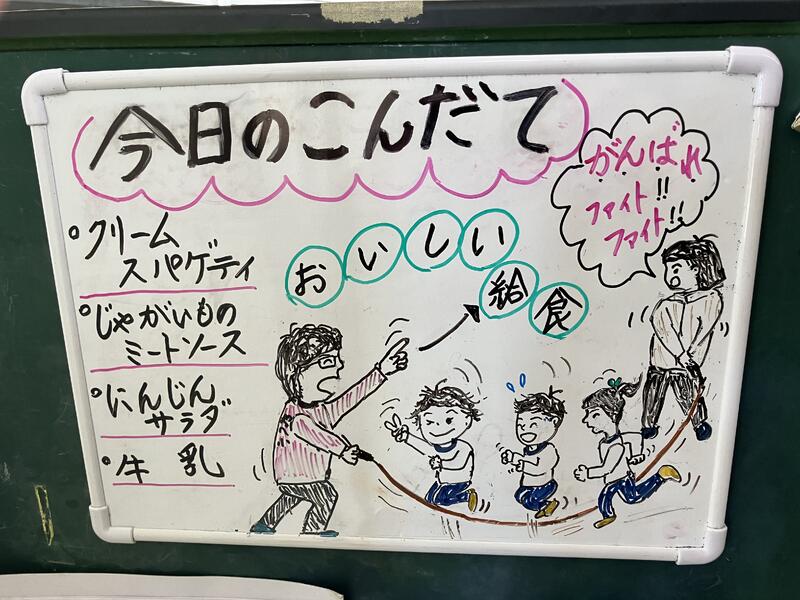 今日のこんだて
がんばれ
ファイト!!
ファイト!!
おいしい
給食
°クリーム
スパゲティ
°じゃがいもの
ミートソース
°にんじん
サラダ
°牛乳